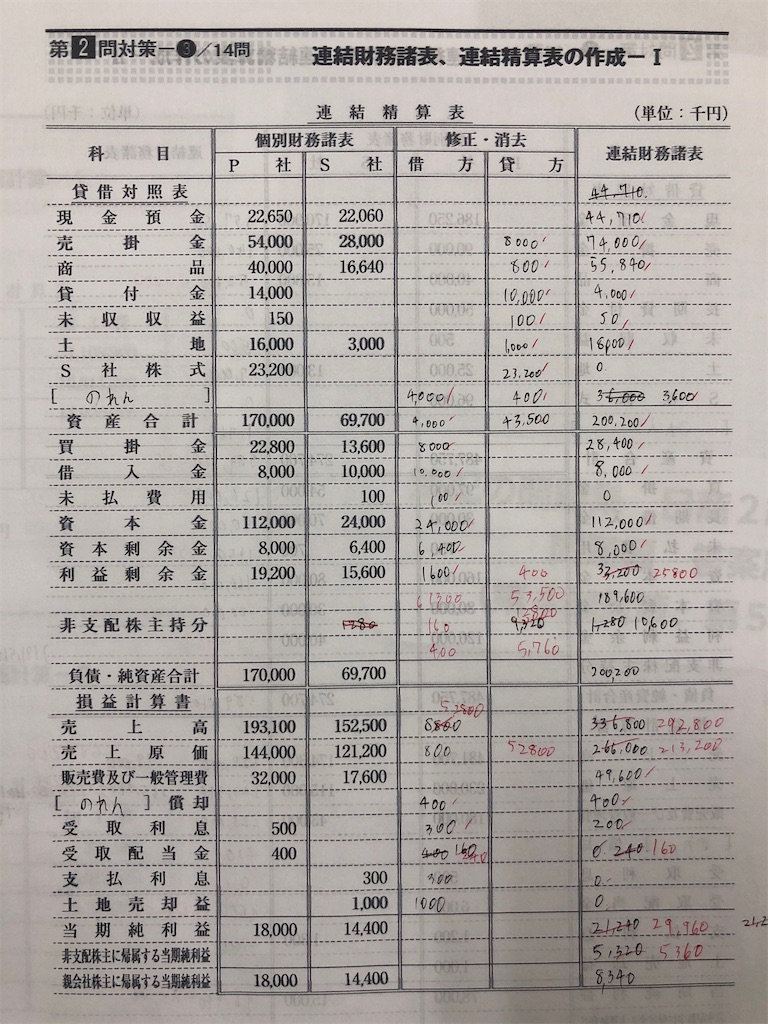 第2問対策-❸/14問 連結財務諸表、連結精算表の作成-Ⅰ
連結精算表 (単位:千円)
科目 個別財務諸表 修正・消去 連結財務諸表
P社 S社 借方 貸方
貸借対照表 44,710
現金預金 22,650 22,060 44,710
売掛金 54,000 28,000 8000 74,000
商品 40,000 16,640 800 55,840
貸付金 14,000 10,000 4,000
未収収益 150 100 50
土地 16,000 3,000 1,000 18,000
S社株式 23,200 23,200 0
[のれん] 4,000 400 36,000 3,600
資産合計 170,000 69,700 4,000 43,500 200,200
買掛金 22,800 13,600 8000 28,400
借入金 8,000 10,000 10,000 8,000
未払費用 100 100 0
資本金 112,000 24,000 24,000 112,000
資本剰余金 8,000 6,400 6,400 8,000
利益剰余金 19,200 15,600 1600 400 33,200 25800
61300 53,500 189,600
12800
非支配株主持分 1280 160 9,320 1,280 10,600
400 5,760
負債・純資産合計 170,000 69,700 200,200
損益計算書 52800
売上高 193,100 152,500 8800 336,800 292,800
売上原価 144,000 121,200 800 52800 265,000 213,200
販売費及び一般管理費 32,000 17,600 49,600
[のれん]償却 400 400
受取利息 500 300 200
受取配当金 400 400 160 240 0 240 160
支払利息 300 300 0
土地売却益 1,000 1000 0
当期純利益 18,000 14,400 21,240 29,960
非支配株主に帰属する当期純利益 5,320 5360
親会社株主に帰属する当期純利益 18,000 14,400 8,340